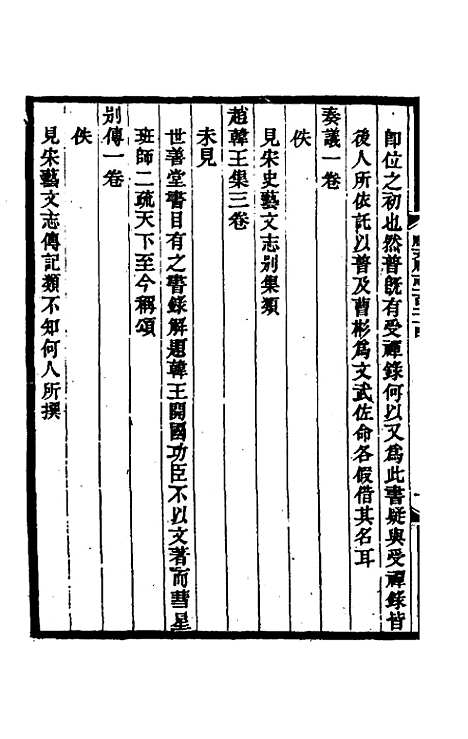 即位之初也然普旣有受禪錄何以又爲此書疑與受禪錄皆
後人所依託以普及曹彬爲文武佐命各假借其名耳
奏議一卷
佚
見宋史藝文志别集類
趙韓王集三卷
未見
世善堂書目有之書錄解題韓王開國功臣不以文著而彗星
班師二疏天下至今稱頌
别傳一卷
佚
見宋藝文志傳記類不知何人所撰